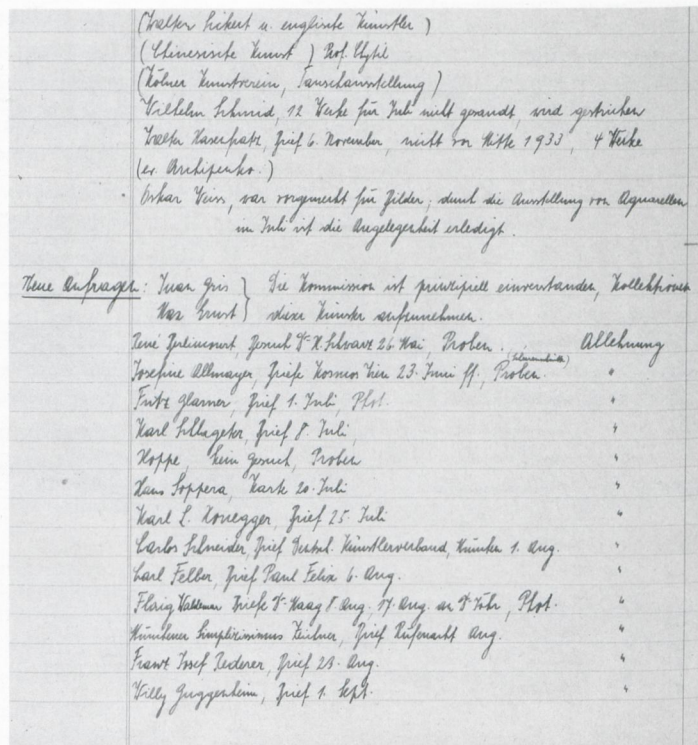 (Walter Sickert u. englische Künstler )
( Chinesische Kunst ) Prof. Chytil
(Kölner Kunstverein, Tauschausstellung )
Wilhelm Schmid, 12 Werke für Juli nicht gesandt, wird gestrichen
Walter Hasenfratz, Brief 6. November, nicht vor Mitte 1933, 4 Werke
(ev. Archipenko.)
Oskar Weiss, war vorgemerkt für Bilder; durch die Ausstellung von Aquarellen
im Juli ist die Angelegenheit erledigt.
Neue Anfragen: Juan Gris } Die Kommission ist prinzipiell einverstanden, Kollektionen
Max Ernst } dieser Künstler aufzunehmen.
René Berlincourt, Gesuch Dr. H. Schwarz 26. Mai, Proben. Ablehnung
Josefine Allmayer, Briefe Kosmos Wien 23. Juni ff., Proben. (Scherenschnitte) "
Fritz Glarner, Brief 1. Juli, Phot. "
Karl Schlageter, Brief 8. Juli, "
Hoppe, kein Gesuch, Proben "
Hans Soppera, Karte 20. Juli "
Karl L. Honegger, Brief 25. Juli "
Carlos Schneider, Brief Deutsch. Künstlerverband, München 1. Aug. "
Carl Felber, Brief Paul Felix 6. Aug. "
Flörig Waldemar Briefe Dr. Haag 8. Aug. 17. Aug. an Dr. Jöhr, Phot. "
Münchener Simplizissimus Zeichner, Brief Rüfenacht Aug. "
Franz Josef Rederer, Brief 23. Aug.
Willy Guggenheim, Brief 1. Sept. "